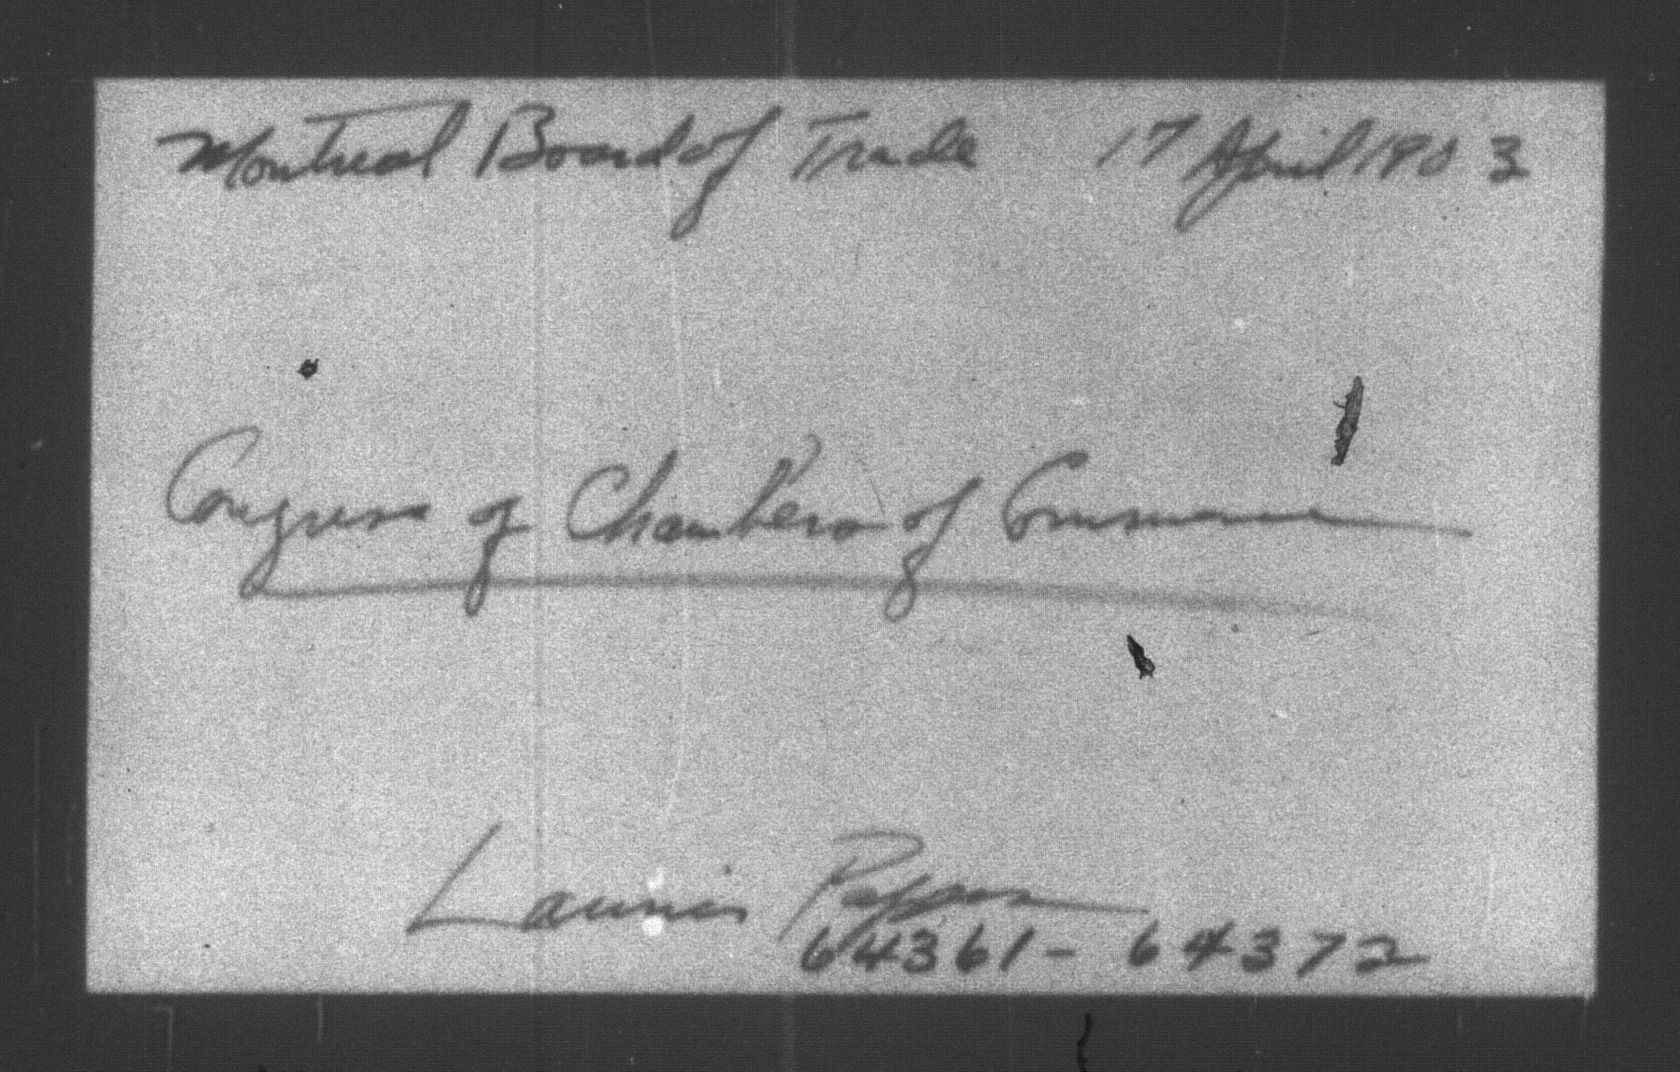 Montreal Board of Trade 17 April 1903
Congress of Chambers of Commerce
Laurier Papers
64361 - 64372